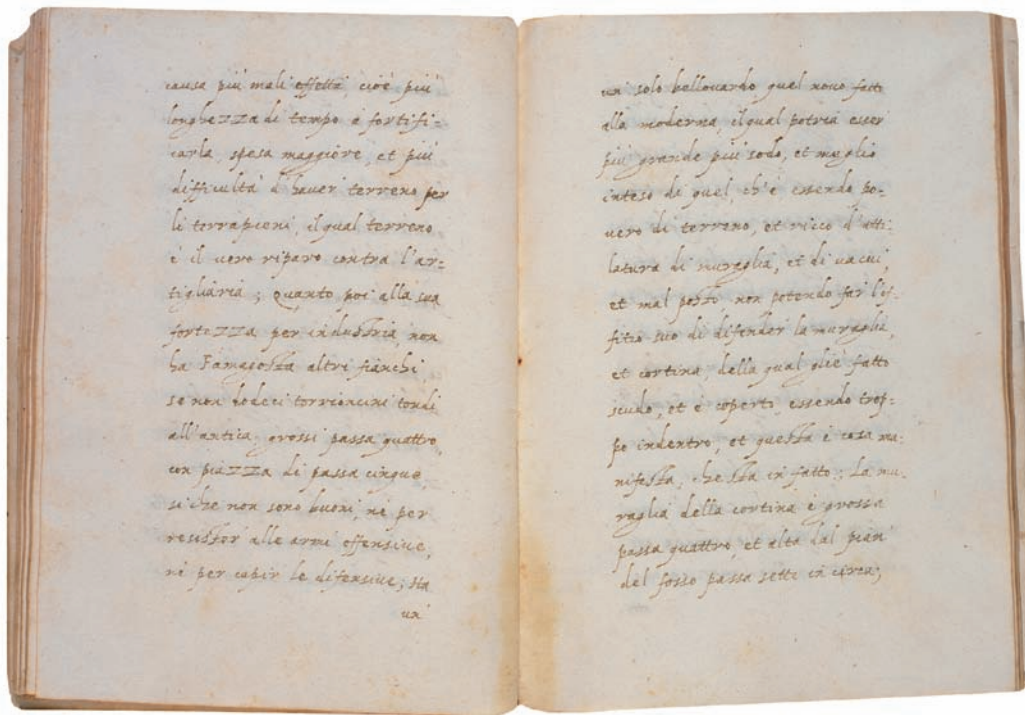 causa più mali effetti, cioè più
longhezza di tempo à fortifi=
carla, spesa maggiore, et più
difficultà d'haver terreno per
li terrapieni, il qual terreno
è il vero riparo contra l'ar=
tigliaria; Quanto poi alla sua
fortezza per industria, non
ha Famagosta altri fianchi,
se non dodeci torrioncini tondi
all'antica, grossi passa quattro,
con piazza di passa cinque
si che non sono buoni, nè per
resister alle armi offensive,
nè per capir le difensive; sta
un
un solo bellouardo quel novo fatto
alla moderna, il qual potria esser
più grande più sodo, et meglio
inteso di quel, ch'è essendo po=
vero di terreno, et ricco d'atti=
latura di muraglia, et di vacui,
et mal posto non potendo far l'of=
fitio suo di difender la muraglia,
et cortina, della qual gliè fatto
scudo, et è coperto, essendo trop=
po indentro, et questa è cosa ma=
nifesta, che sta in fatto; La mu=
raglia della cortina è grossa
passa quattro, et alta dal pian
del fosso passa sette in circa;